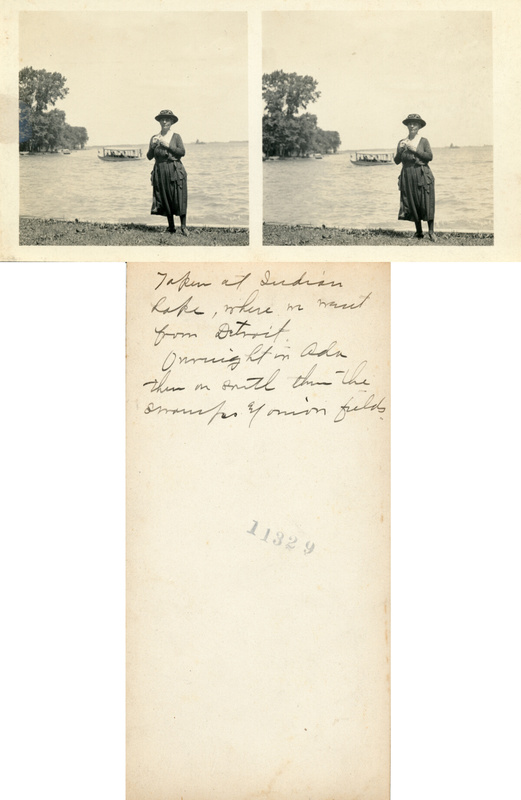 Taken at Indian
Lake, where we went
from Detroit.
Overnight in Ada
then on south thru the
swamps & onion fields.
11329